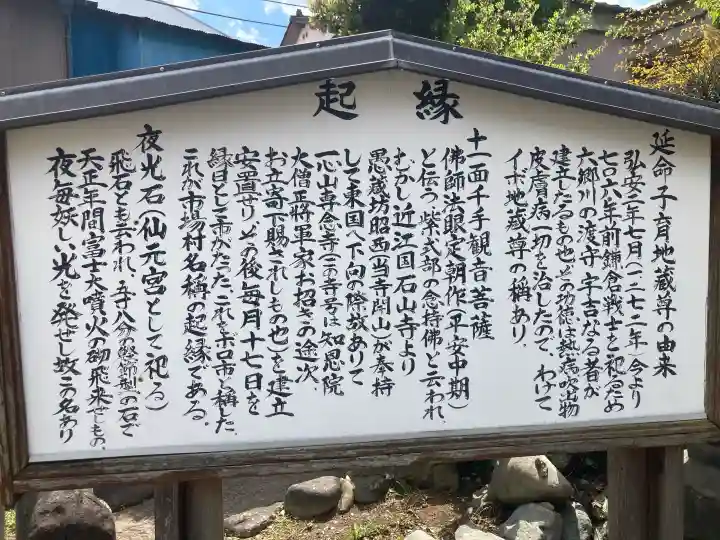 縁起
延命子育地蔵尊の由来
弘安二年七月(一二七二年)今より
七〇六年前鎌倉戦士を祀るため
六郷川の渡守宇吉なる者が
建立したるもの也、その功徳は熱病吹出物
皮膚病一切を治したので、わけて
イボ地蔵尊の称あり、
十一面千手観音菩薩
佛師法眼定朝作(平安中期)
と伝う、紫式部の念持佛と云われ、
むかし近江国石山寺より
愚蔵坊昭西(当寺開山)が奉持
して東国へ下向の際故ありて
一心山専念寺(この寺号は知恩院
大僧正将軍家お招きの途次、
お立寄下賜されしもの也)を建立
安置せり、その後毎月十七日を
縁日として市がたった、これをボロ市と称した、
これが市場村名称の起縁である。
夜光石(仙元宮として祀る)
飛石とも云われ、五十八分の
の一石で
天正年間富士大噴火の砌飛来せしもの、
夜毎妖しい光を発せし故この名あり